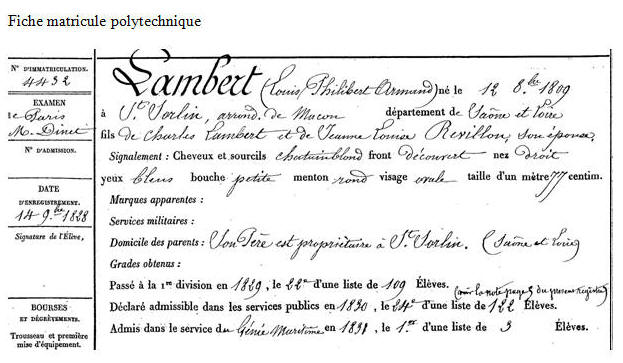 Fiche matricule polytechnique
N° D'IMMATRICULATION.
4432
EXAMEN
de Paris
M. Dinet
N° D'ADMISSION.
DATE
D'ENREGISTREMENT.
14 9.bre 1828
Signature de l'Élève,
BOURSES
ET DÉGRÈVEMENTS.
Trousseau et première
mise d'équipement.
Lambert (Louis Philibert Armand) né le 12 8.bre 1809
à St. Sorlin, arrond. de Macon département de Saône et Loire
fils de Charles Lambert et de Jeanne Louise Revillon, son épouse.
Signalement : Cheveux et sourcils chatainblond front Découvert nez droit
yeux bleus bouche petite menton rond visage ovale taille d'un mètre 77 centim.
Marques apparentes :
Services militaires :
Domicile des parents : Son Père est propriétaire à St. Sorlin. (Saône et Loire)
Grades obtenus :
Passé à la 1re division en 1829, le 22e d'une liste de 109 Élèves.
(voir la note page du présent registre)
Déclaré admissible dans les services publics en 1830, le 24e d'une liste de 122 Élèves.
Admis dans le service du Génie Maritime en 1831, le 1er d'une liste de 3 Élèves.